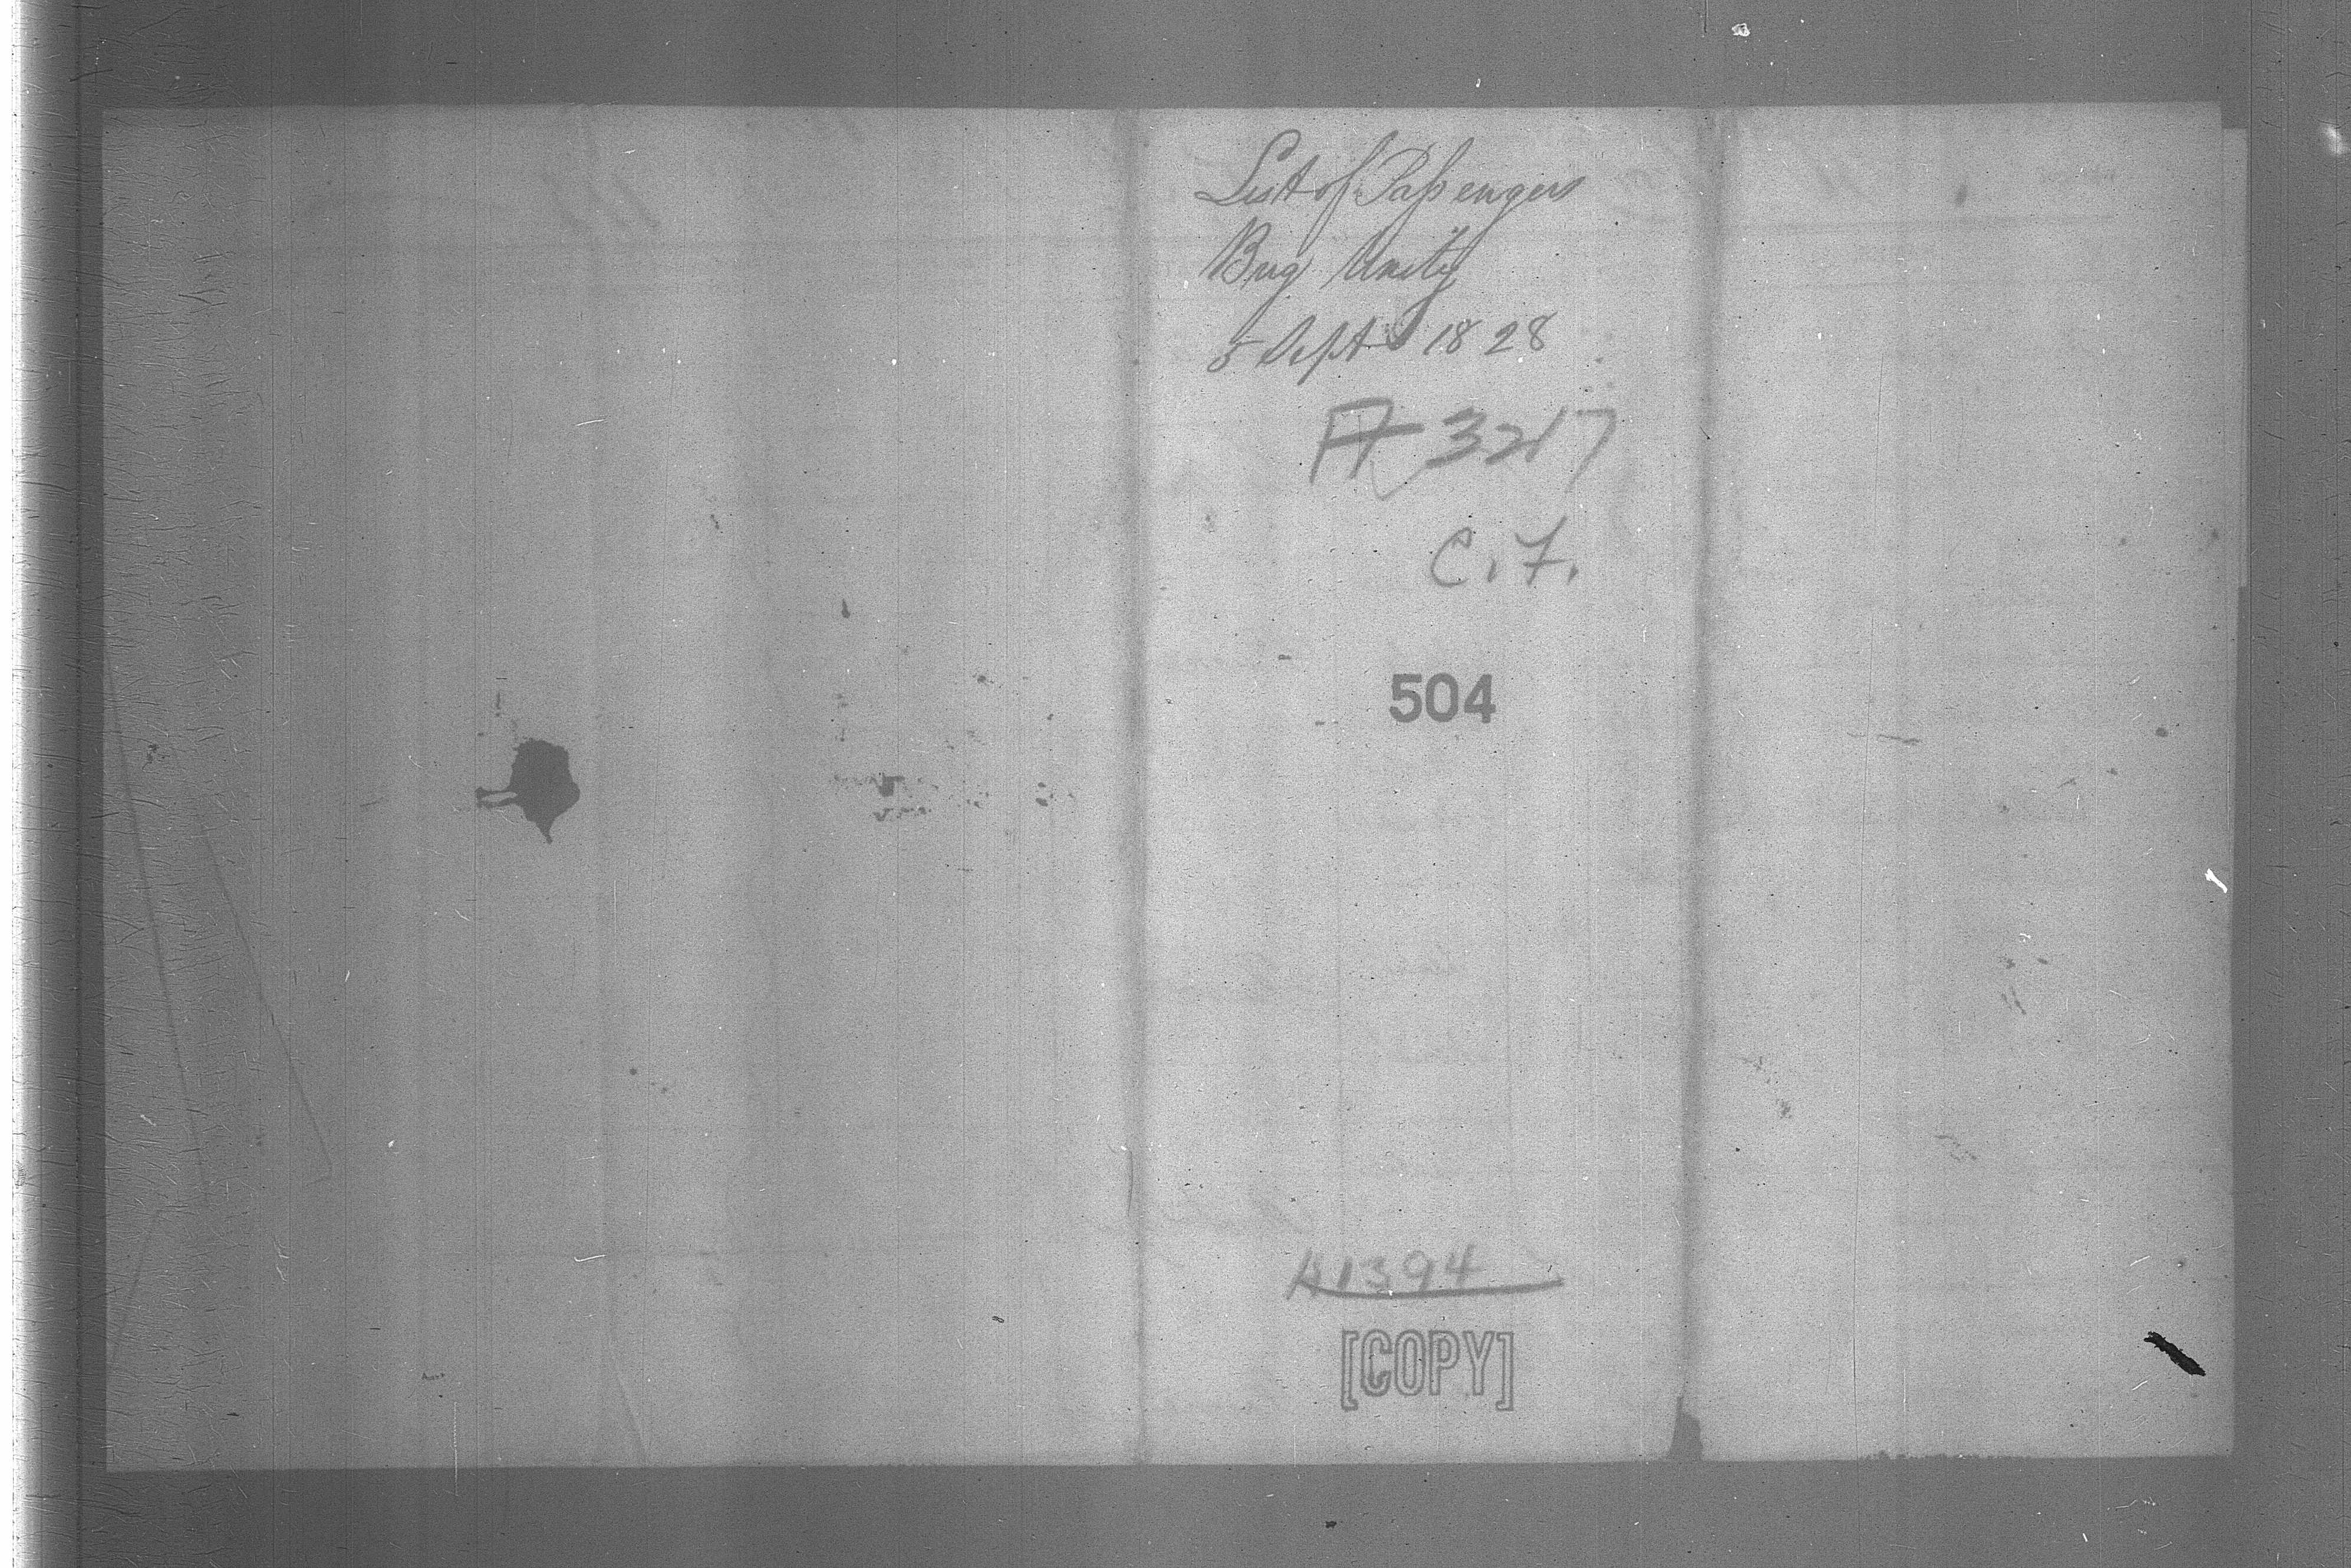 List of Passengers
Brig Unity
5 Sept 1828
A 3217
C.F.
504
A1394
[COPY]